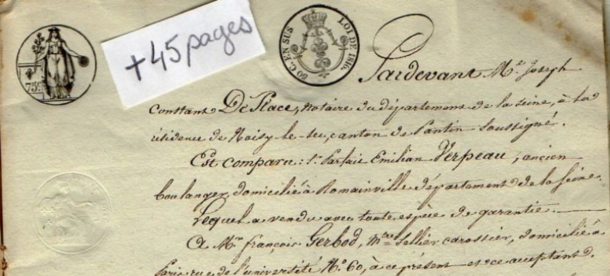 +45 pages
75c
50 C. EN SUS
LOI DE 1816.
Pardevant Me. Joseph
Constant De Place, notaire du département de la seine, à la
résidence de Noisy-le-sec, canton de Pantin soussigné.
Est comparu: Sr. Parfait Emilian Verpeau, ancien
boulanger, domicilié à Romainville département de la Seine.
Lequel a vendu avec toute espèce de garantie.
A Mr. François Gerbod, Mtre. Sellier carossier, domicilié à
Paris rue de l'université No. 60, à ce présent et ce acceptant.